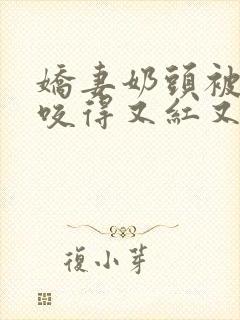 嬌妻奶頭被
咬得又紅又
復小芽